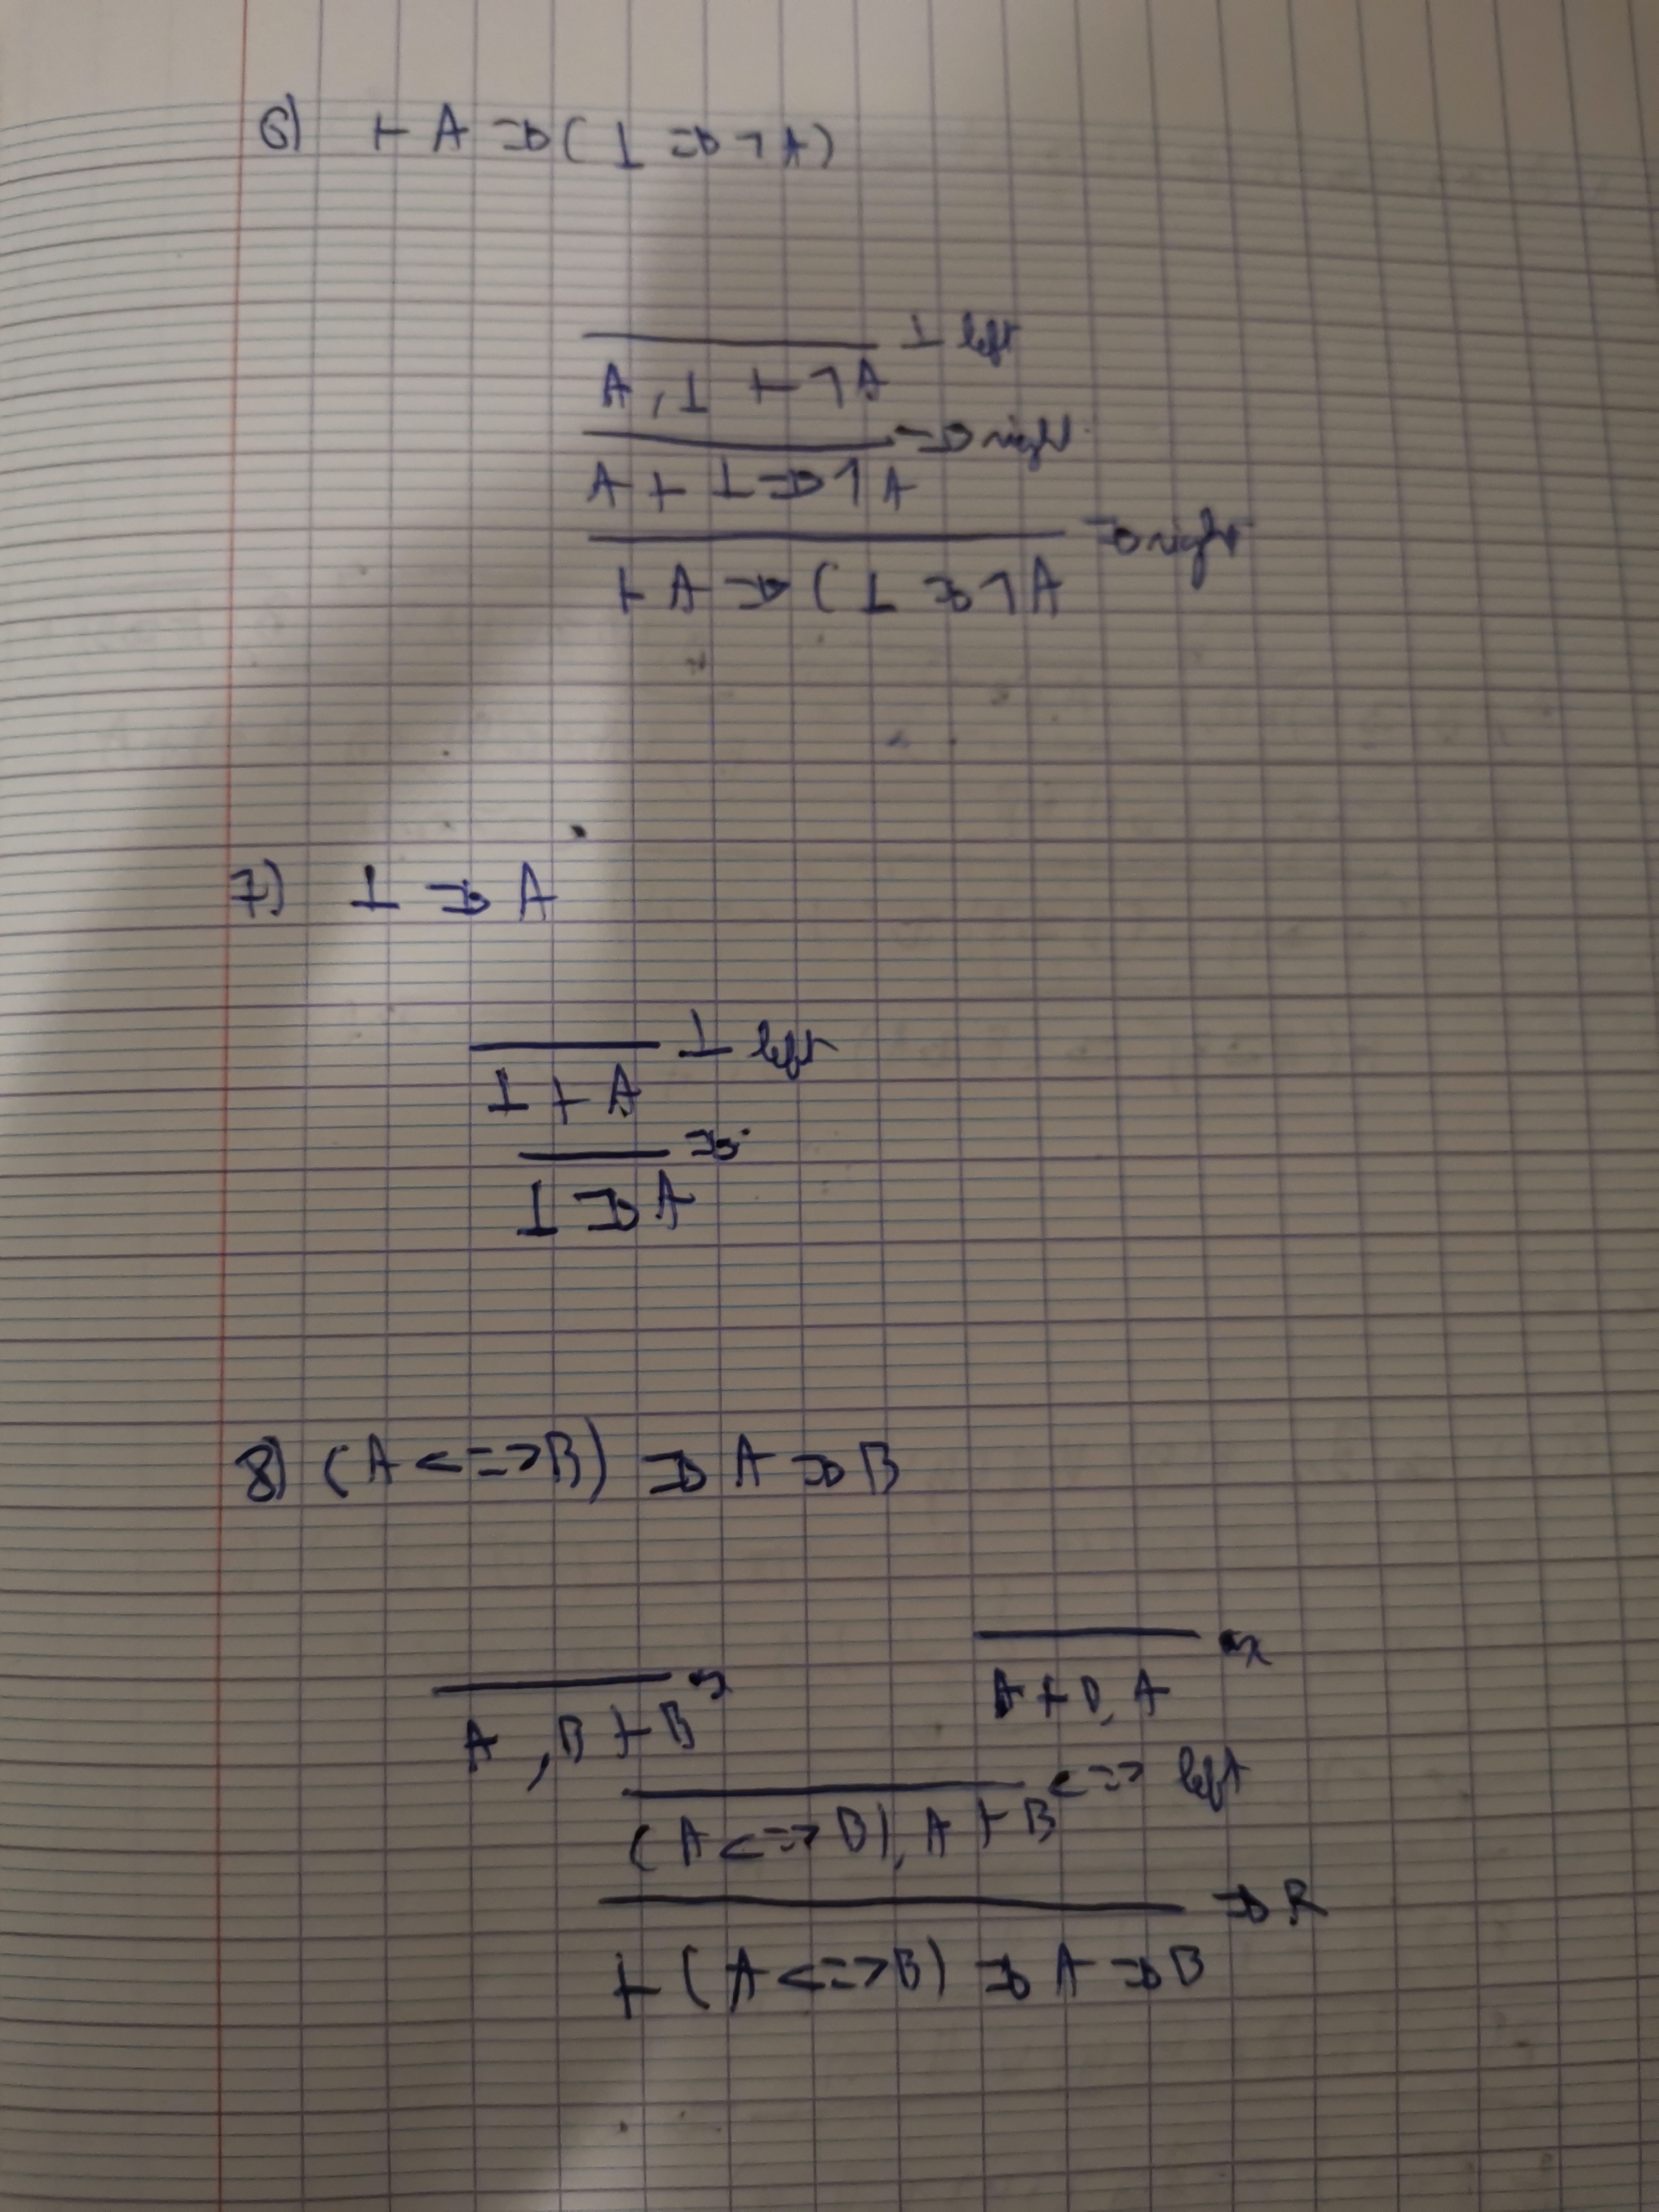 6) ⊢ A ⇒ ( ⊥ ⇒ ¬A)
⊥ left
A, ⊥ ⊢ ¬A
⇒ right
A ⊢ ⊥ ⇒ ¬A
⇒ right
⊢ A ⇒ ( ⊥ ⇒ ¬A
7) ⊥ ⇒ A
⊥ left
⊥ ⊢ A
⇒
⊥ ⇒ A
8) (A <=> B) ⇒ A ⇒ B
ax ax
A, B ⊢ B A ⊢ B, A
<=> left
(A <=> B), A ⊢ B
⇒ R
⊢ (A <=> B) ⇒ A ⇒ B